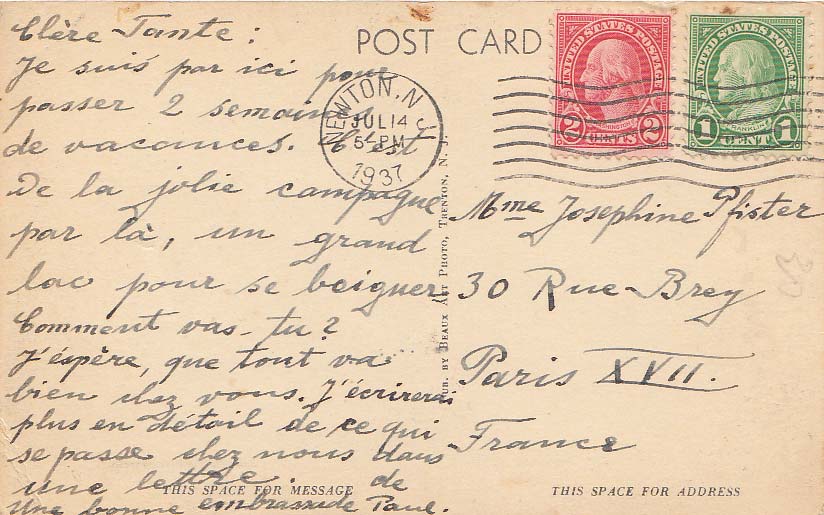 POST CARD
Chère Tante :
Je suis par ici pour
passer 2 semaines
de vacances. C'est
de la jolie campagne
par là, un grand
lac pour se beigner
Comment vas-tu?
J'éspère, que tout va
bien chez vous. J'écrirerai
plus en détail de ce qui
se passe chez nous dans
une lettre. de
Une bonne embrassade Paul.
THIS SPACE FOR MESSAGE
PUB. BY BEAUX ART PHOTO, TRENTON, N. J.
NEWTON, N
JUL 14
5 - PM
1937
UNITED STATES POSTAGE
WASHINGTON
2 CENTS 2
UNITED STATES POSTAGE
FRANKLIN
1 CENT 1
Mme Josephine Pfister
30 Rue-Brey
Paris XVII.
France
THIS SPACE FOR ADDRESS